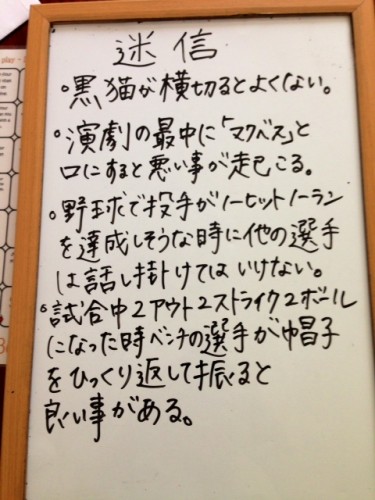 迷信
°黒猫が横切るとよくない。
°演劇の最中に「マクベス」と
口にすると悪い事が起こる。
°野球で投手がノーヒットノーラン
を達成しそうな時に他の選手
は話し掛けてはいけない。
°試合中2アウト2ストライク2ボール
になった時ベンチの選手が帽子
をひっくり返して振ると
良い事がある。